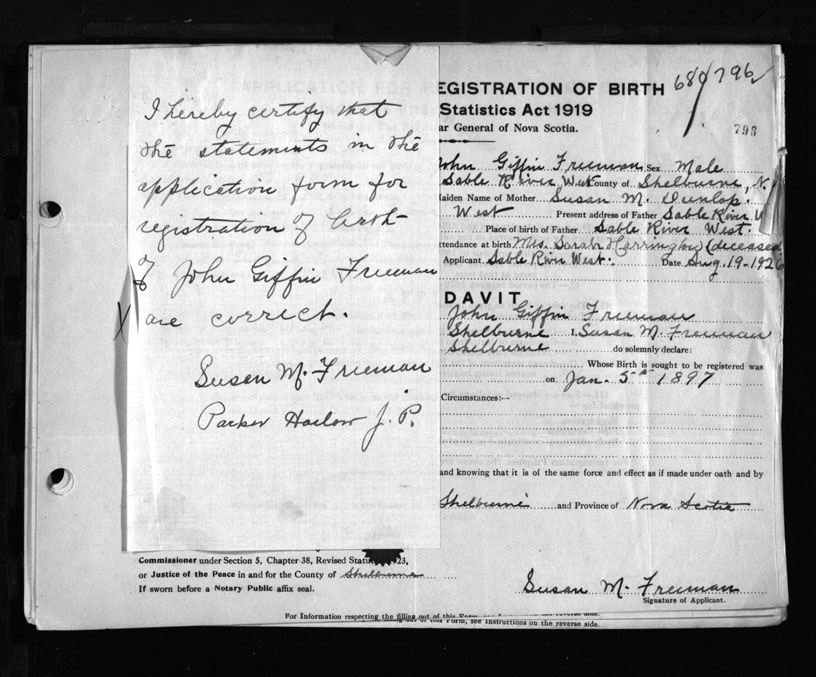 I hereby certify that
the statements in the
application form for
registration of birth
of John Giffin Freeman
are correct.
Susan M. Freeman
Parker Harlow J. P.
EGISTRATION OF BIRTH 680796
Statistics Act 1919
ar General of Nova Scotia. 793
John Giffin Freeman Sex Male
Sable River West County of Shelburne, N.
aiden Name of Mother Susan M. Dunlop.
West Present address of Father Sable River W
Place of birth of Father Sable River West.
ttendance at birth Mrs. Sarah Harrington (deceased
Applicant. Sable River West. Date Aug. 19-1926
DAVIT
John Giffin Freeman
Shelburne I, Susan M. Freeman
Shelburne do solemnly declare:
Whose Birth is sought to be registered was
on Jan. 5th 1897
Circumstances:--
and knowing that it is of the same force and effect as if made under oath and by
Shelburne and Province of Nova Scotia
Commissioner under Section 5, Chapter 38, Revised Statu 923,
or Justice of the Peace in and for the County of Shelburne
If sworn before a Notary Public affix seal.
Susan M. Freeman
Signature of Applicant.
For Information respecting the filling out of this Form
ing out of this Form, see Instructions on the reverse side.